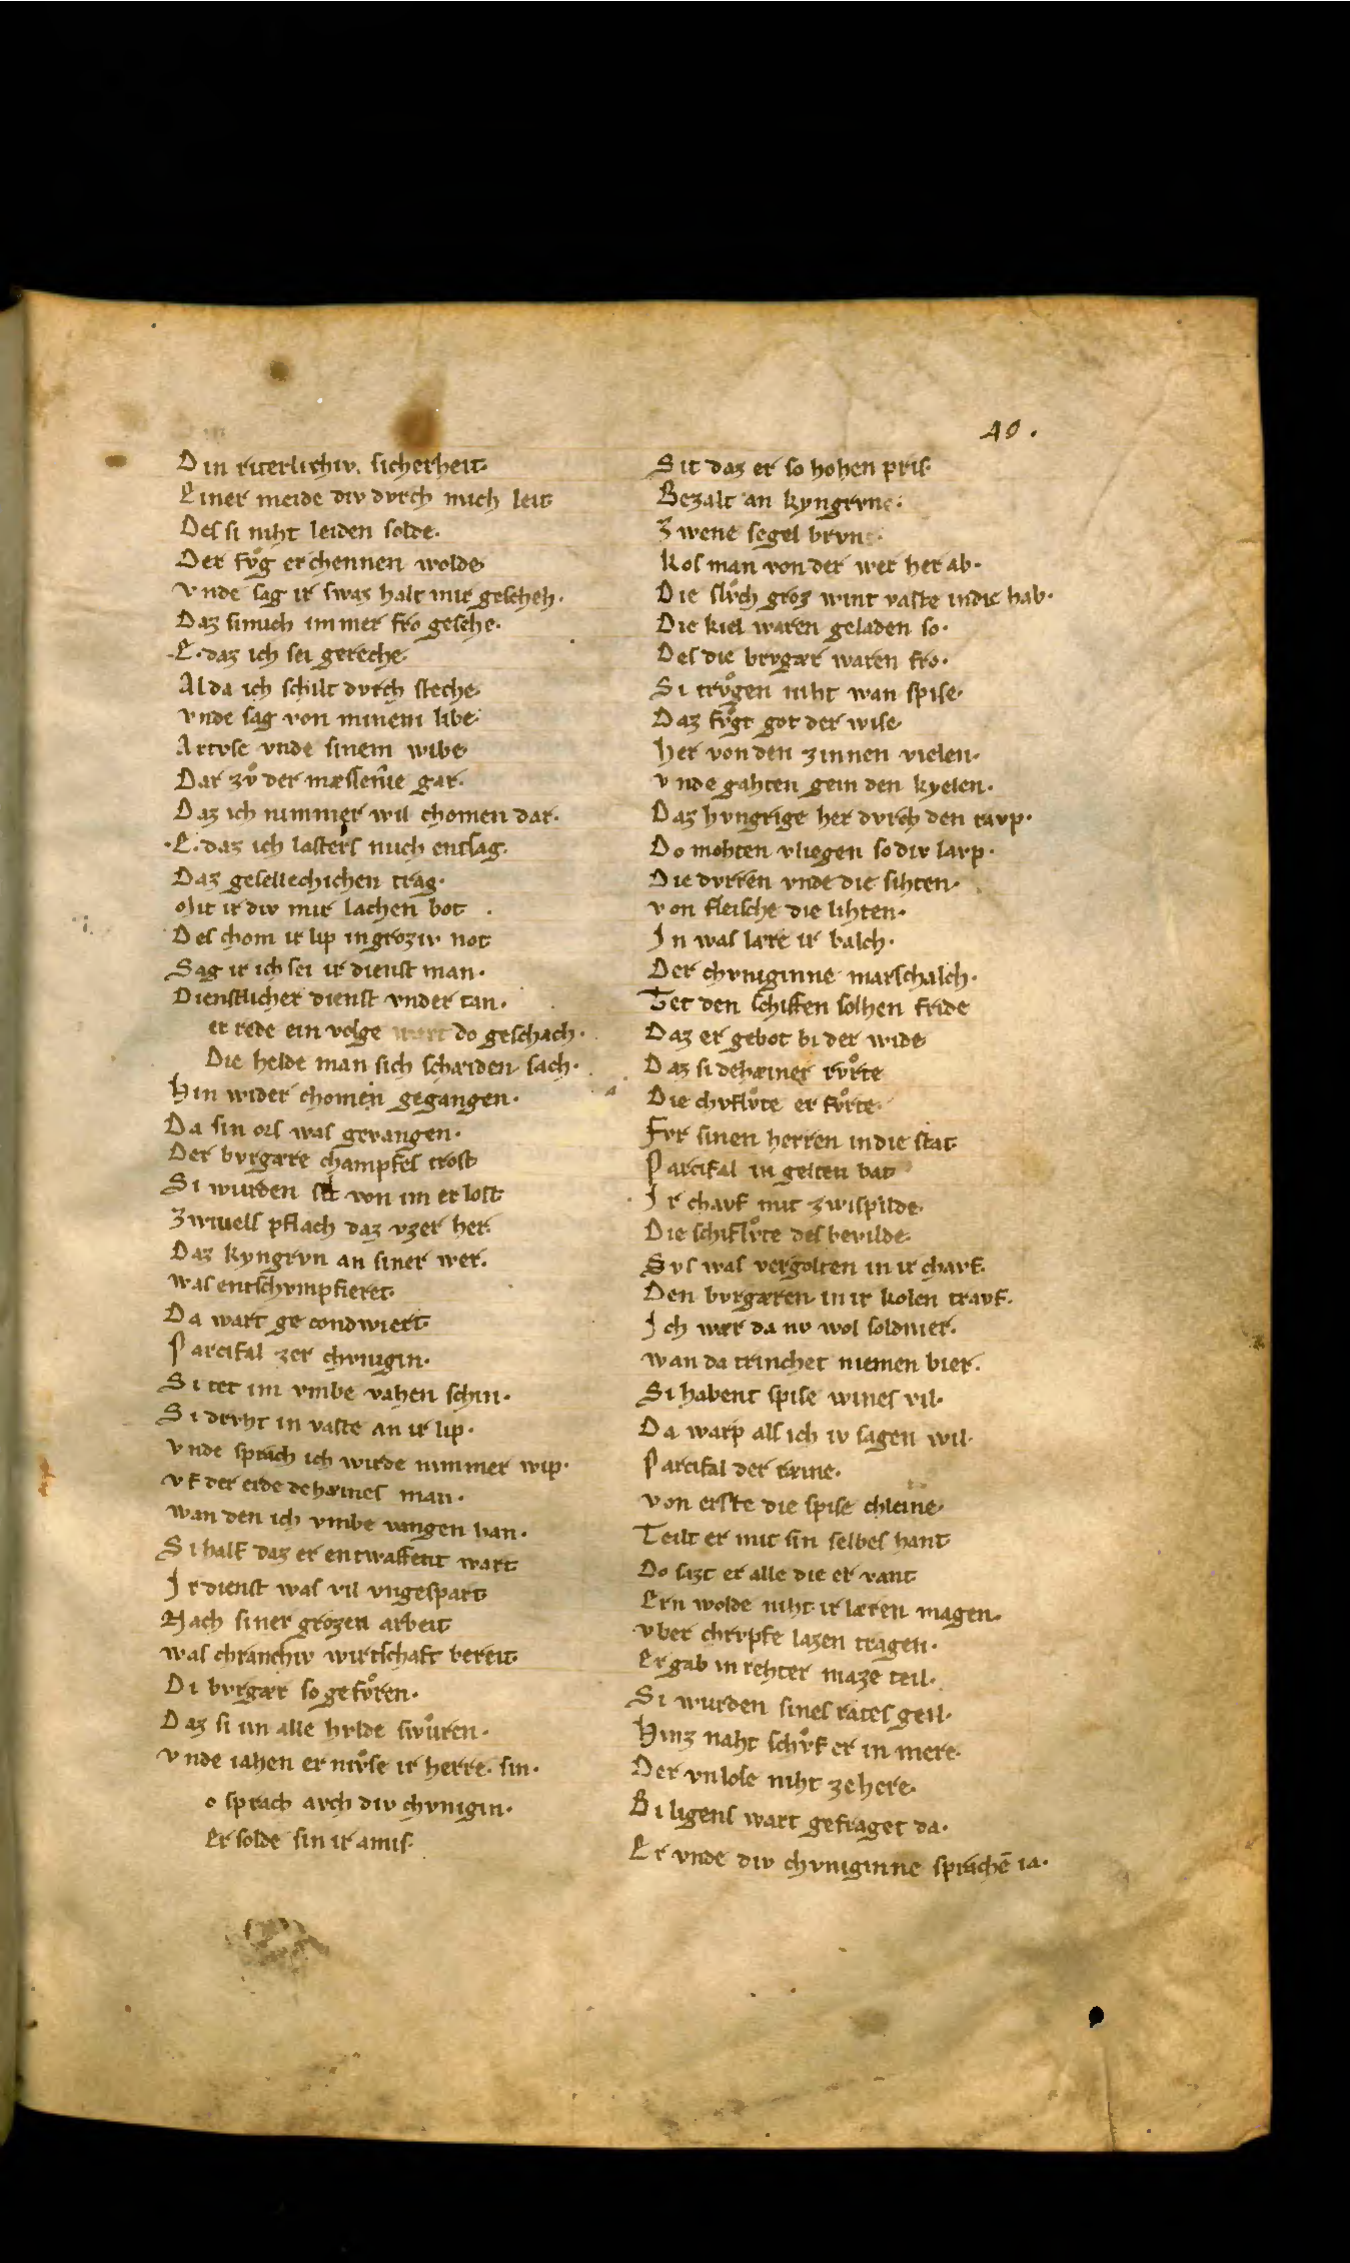 40.
Din riterlichiv. sicherheit.
Einer meide div dvrch mich leit
Des si niht leiden solde.
Der fvͦg erchennen wolde
vnde sag ir swaz halt mir gescheh.
Daz simich immer fro gesehe.
E. daz ich sei gereche.
Alda ich schilt dvrch steche
vnde sag von minem libe
Artvse vnde sinem wibe
Dar zvͦ der mæssenie gar.
Daz ich nimmer wil chomen dar.
E. daz ich lasters mich entsag.
Daz gesellechichen trag.
Mit ir div mir lachen bot
Des chom ir lip in groziv not
Sag ir ich sei ir dienst man.
Dienstlicher dienst vnder tan.
er rede ein volge wart do geschach.
Die helde man sich schæiden sach.
Hin wider chomen gegangen.
Da sin ors was gevangen.
Der bvrgære champfes trost
Si wurden sit von im erlost
Zwivels pflach daz vzer her.
Daz kyngrvn an siner wer.
was entschvmpfieret.
Da wart gecondwiert.
Parcifal zer chvnigin.
Si tet im vmbe vahen schin.
Si drvht in vaste an ir lip.
vnde sprach ich wirde nimmer wip.
vf der erde dehæines man.
wan den ich vmbe vangen han.
Si half daz er entwaffent wart
Ir dienst was vil vngespart
Nach siner grozen arbeit
was chranchiv wirtschaft bereit.
Di bvrgær so gefvͦren.
Daz si im alle hvlde swuͦren.
vnde iahen er mvͤse ir herre. sin.
o sprach avch div chvnigin.
Er solde sin ir amis.
Sit daz er so hohen pris.
Bezalt an kyngrvne.
Zwene segel brvn
kos man von der wer her ab.
Die slvͦch groz wint vaste indie hab.
Die kiel waren geladen so.
Des die bvrgær waren fro.
Si trvͦgen niht wan spise.
Daz fvͦgt got der wise
her von den zinnen vielen.
vnde gahten gein den kyelen.
Daz hvngrige her dvrch den ravp.
Do mohten vliegen so div lavp.
Die dvrren vnde die sihten.
von fleische die lihten.
In was lære ir balch.
Der chvniginne marschalch.
Tet den schiffen solhen fride
Daz er gebot bi der wide
Daz si dehæiner rvͦrte
Die chvflvͦte er fvͦrte.
Fvr sinen herren indie stat
Parcifal in gelten bat
Ir chavf mit zwispilde.
Die schiflvͦte des bevilde.
Svs was vergolten in ir chavf.
Den bvrgæren in ir kolen travf.
Ich wær da nv wol soldnier.
wan da trinchet niemen bier.
Si habent spise wines vil.
Da warp als ich iv sagen wil.
Parcifal der ræine.
von erste die spise chleine.
Teilt er mit sin selbes hant
Do sazt er alle die er vant
Ern wolde niht ir læren magen.
vber chrvpfe lazen tragen.
Er gab in rehter maze teil.
Si wurden sines rates geil.
Hinz naht schvͦf er in mere.
Der vnlose niht zehere.
Bi ligens wart gefraget da.
Er vnde div chvniginne sprachē ia.